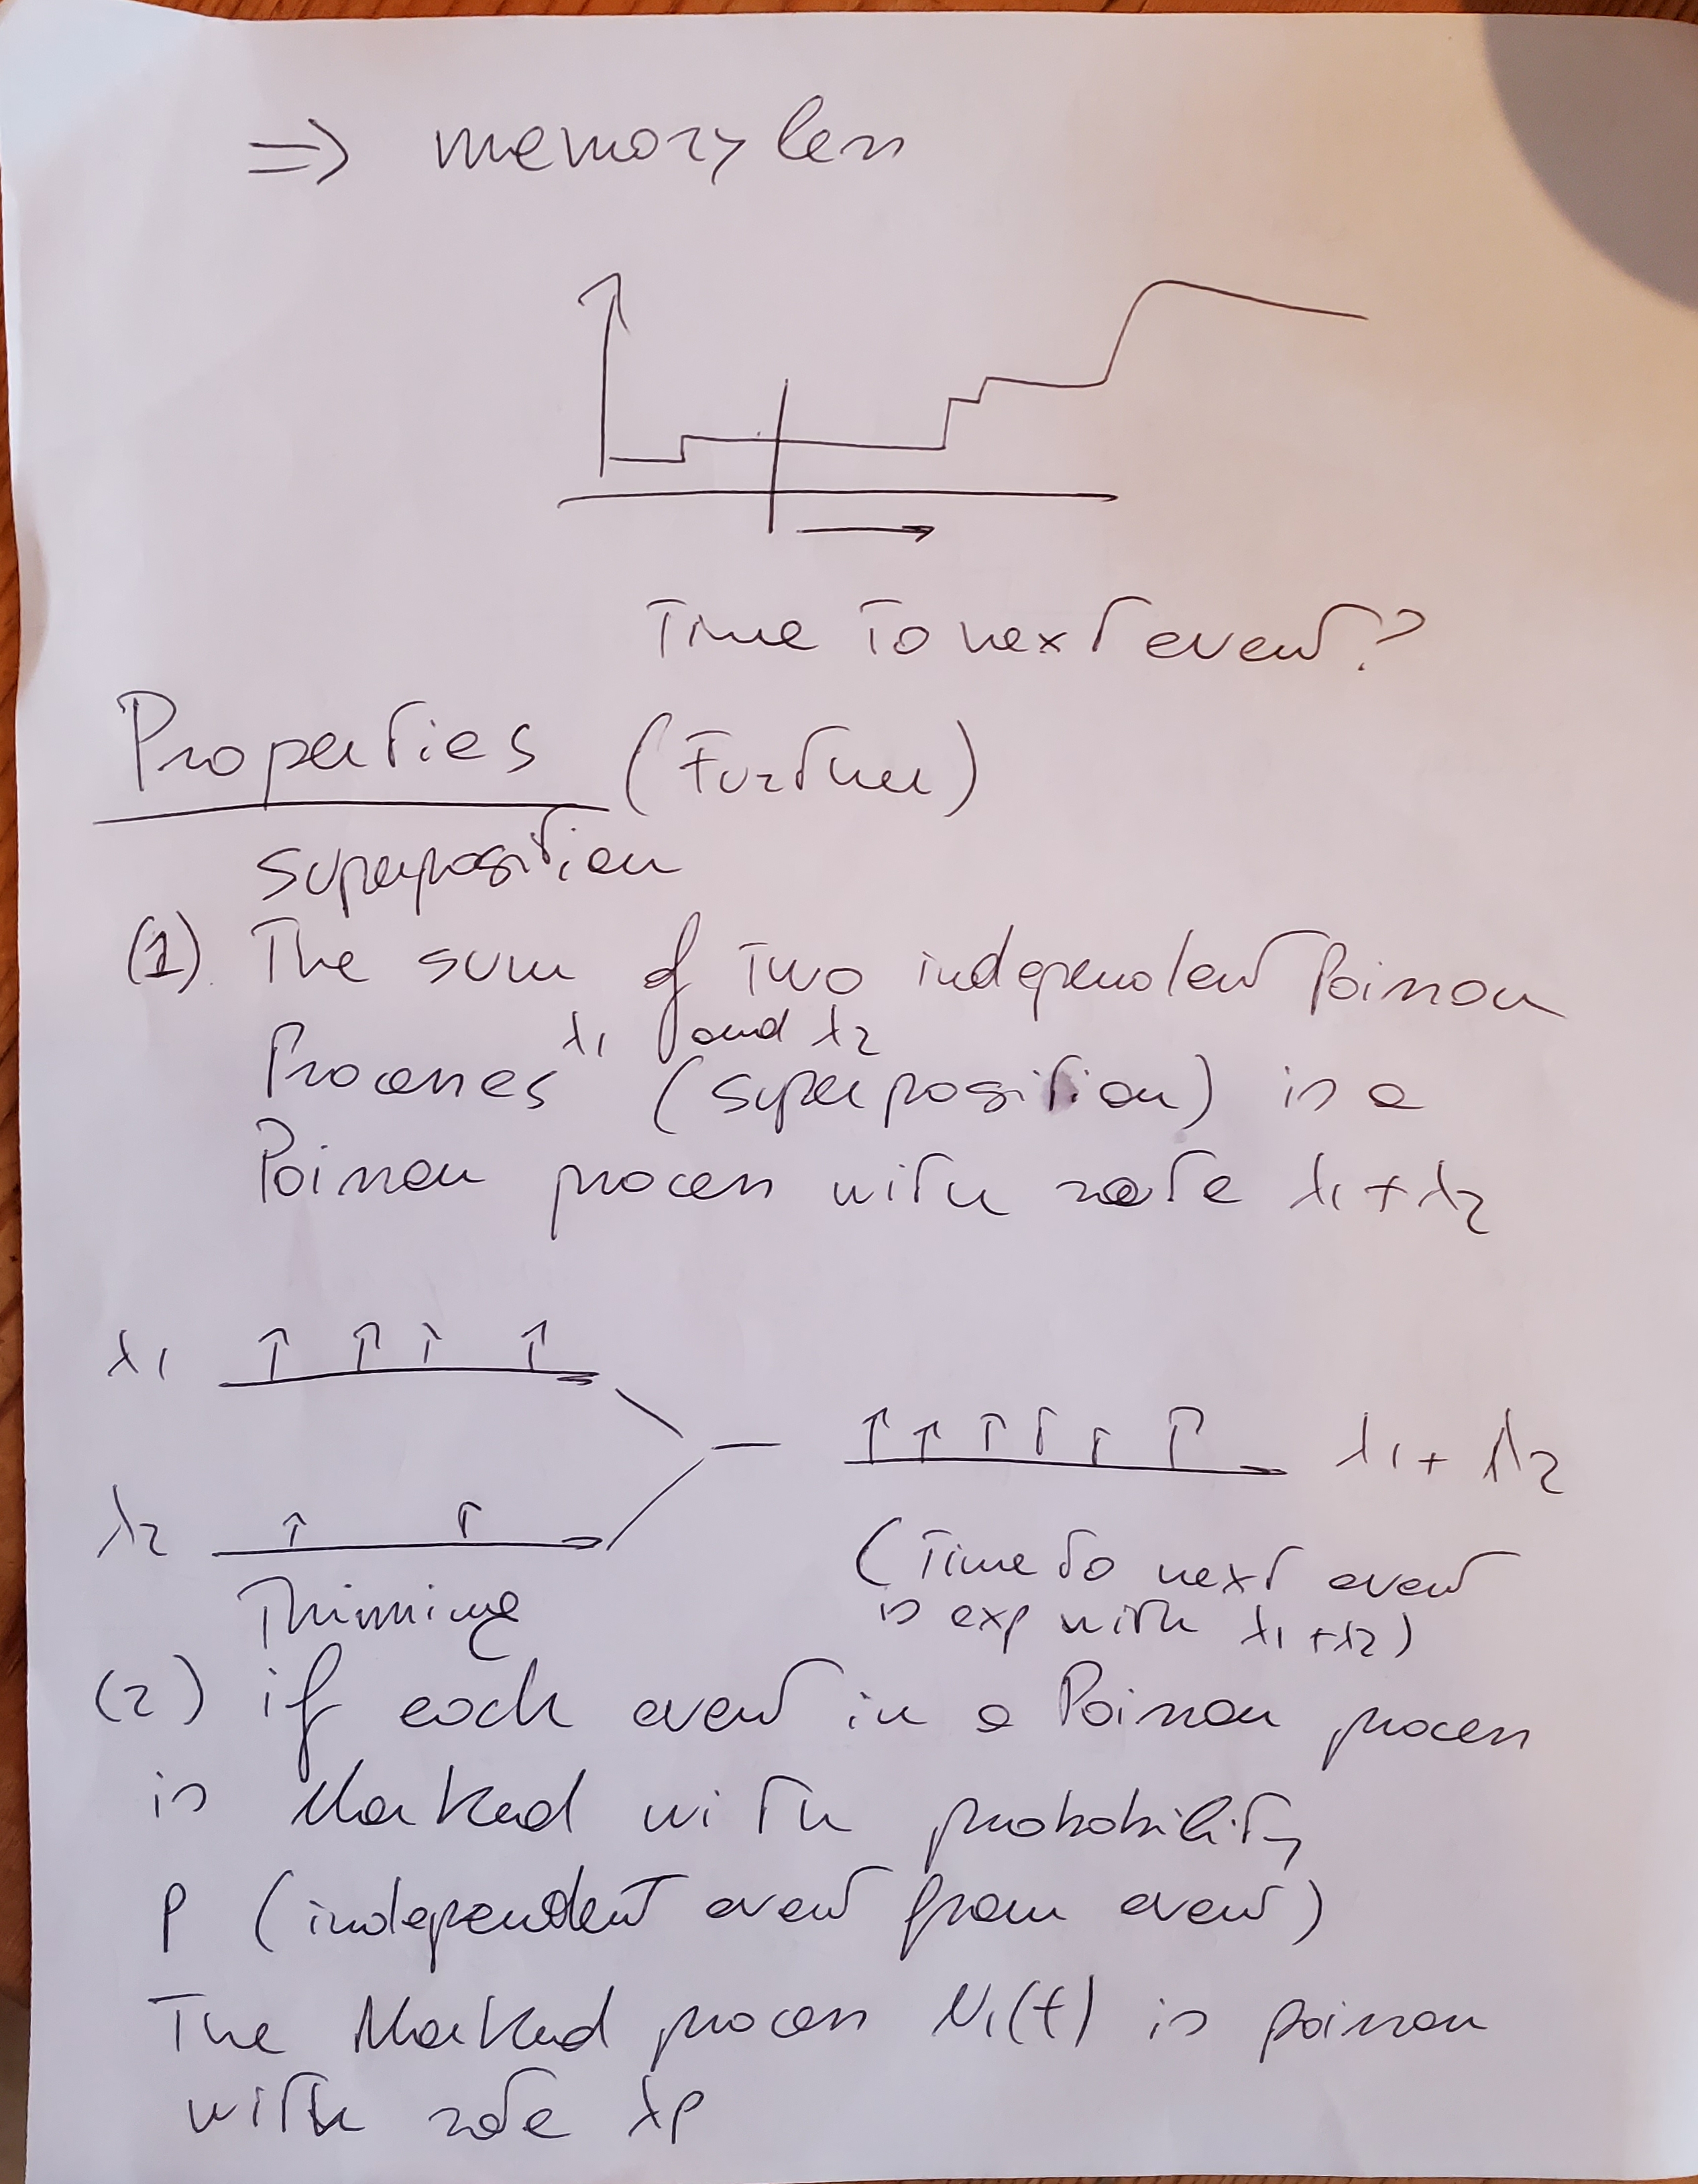 ⇒ memoryless
Time To next event?
Properties (Further)
superposition
(1). The sum of Two independent Poisson
λ1 and λ2
Processes (superposition) is a
Poisson process with rate λ1 + λ2
λ1
λ1 + λ2
λ2
(Time to next event
Thinning
is exp with λ1 + λ2)
(2) if each event in a Poisson process
is Marked with probability
p (independent event from event)
The Marked process N1(t) is poisson
with rate λp